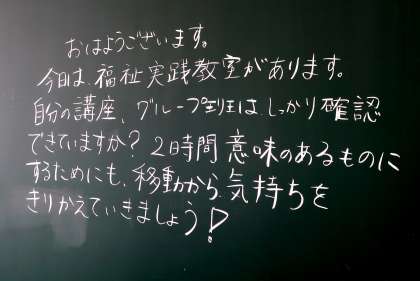 おはようございます。
今日は、福祉実践教室があります。
自分の講座、グループ班はしっかり確認
できていますか？2時間意味のあるものに
するためにも、移動から気持ちを
きりかえていきましょう！